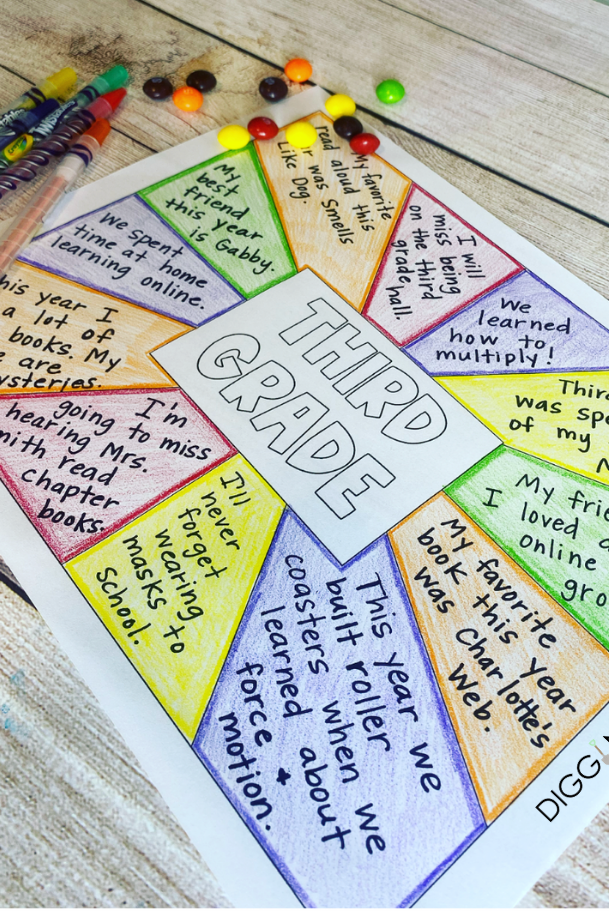 THIRD
GRADE
My favorite
read aloud this
was Smells
Like Dog.
I will
miss being
on the third
grade hall.
We
learned
how to
multiply!
was
of my
My
I loved
online
My favorite
book this year
was Charlotte's
Web.
This year we
built roller
coasters when we
learned about
force +
motion.
I'll
never
forget
wearing
masks to
school.
I'm
going to miss
hearing Mrs.
read
chapter
books.
this year I
a lot of
books. My
are
We spent
time at home
learning online.
My
best
friend
this year
is Gabby.
Crayola